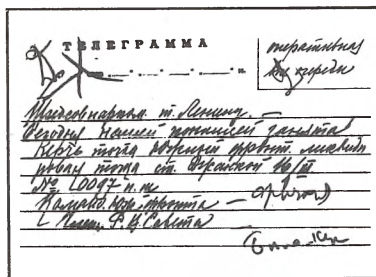 ТЕЛЕГРАММА
оперативная
вне очереди
Предсовнарком т. Ленину. —
Сегодня нашей конницей занята
Керчь точка южный фронт ликвиди
рован точка ст. 16/
№ 0097 п. п.
Командюж фронта — Фрунзе
Член Р. В. Совета
Бела-Кун